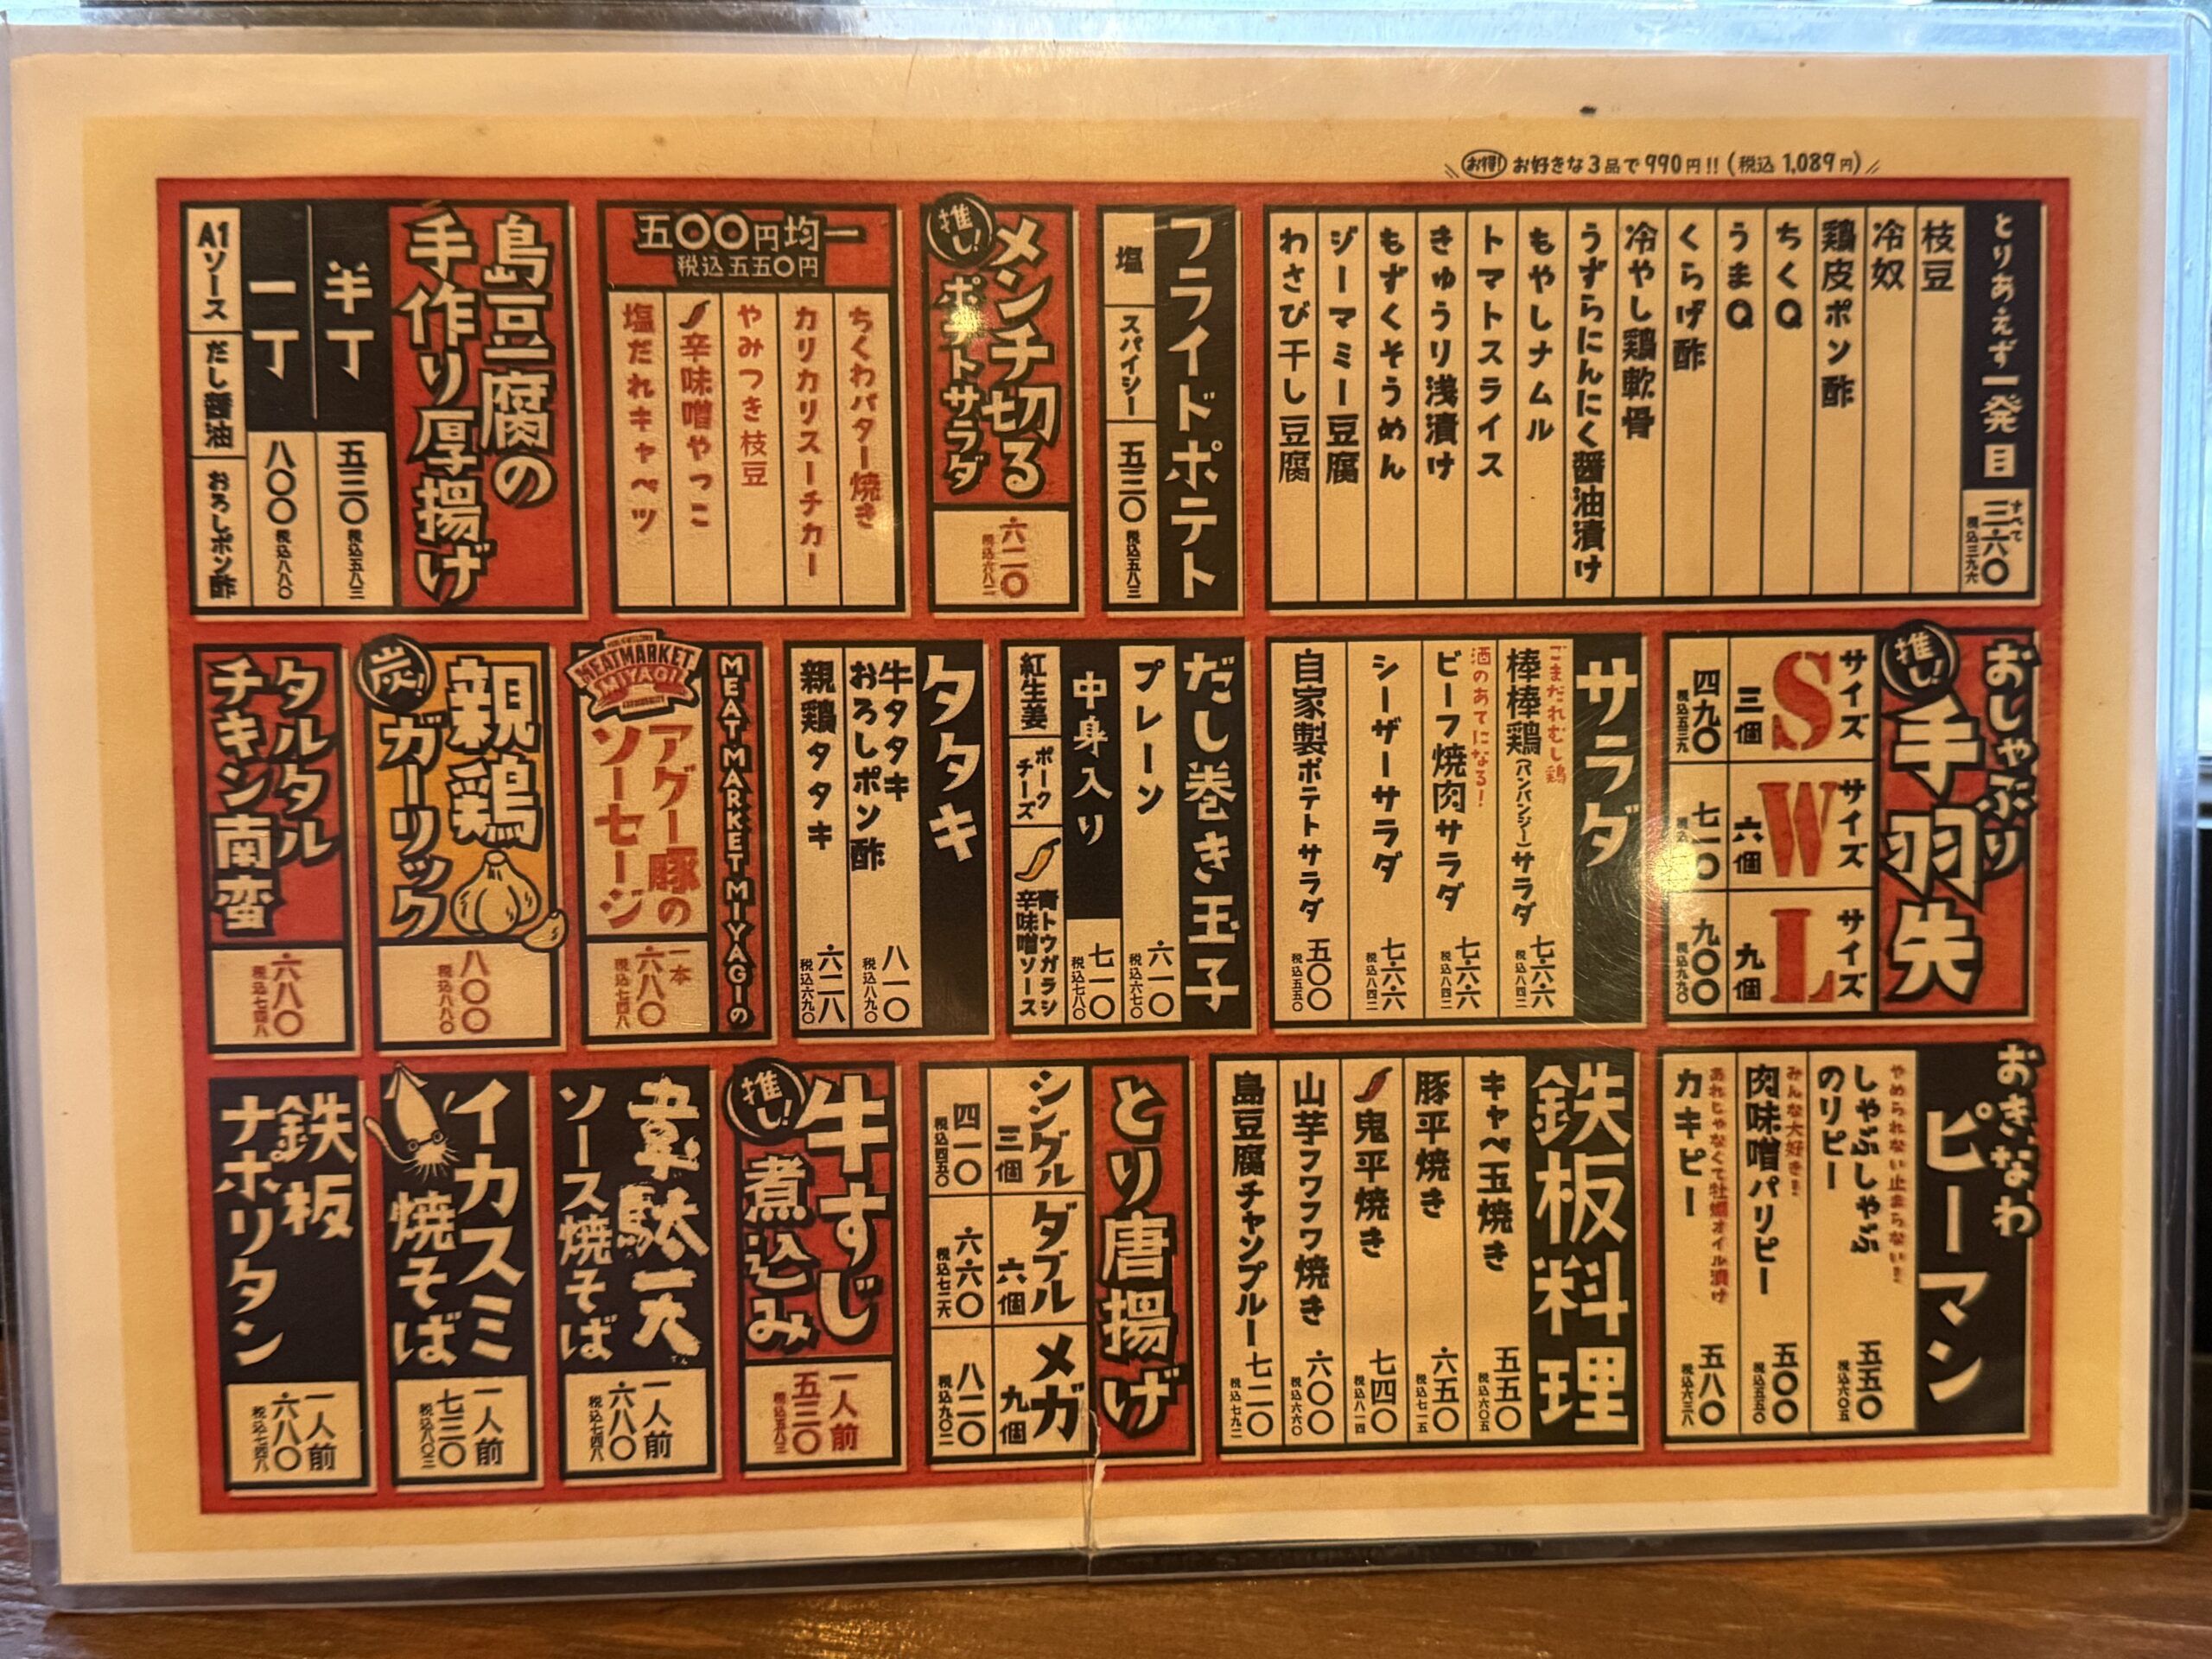 お得! お好きな3品で990円!!(税込1,089円)
とりあえず一発目
すべて
三六〇
税込三九六
枝豆
冷奴
鶏皮ポン酢
ちくQ
うまQ
くらげ酢
冷やし鶏軟骨
うずらにんにく醤油漬け
もやしナムル
トマトスライス
きゅうり浅漬け
もずくそうめん
ジーマミー豆腐
わさび干し豆腐
フライドポテト
塩
スパイシー
五三〇
税込五八三
推し!
メンチ切る
ポテトサラダ
六二〇
税込六八二
五〇〇円均一
税込五五〇円
ちくわバター焼き
カリカリスーチカー
やみつき枝豆
辛味噌やっこ
塩だれキャベツ
島豆腐の
手作り厚揚げ
半丁
五三〇
税込五八三
一丁
八〇〇
税込八八〇
A1ソース
だし醤油
おろしポン酢
おしゃぶり
推し!
手羽先
サイズ
S
三個
四九〇
税込五三九
サイズ
W
六個
七一〇
サイズ
L
九個
九〇〇
税込九九〇
サラダ
ごまだれむし鶏
棒棒鶏(バンバンジー)サラダ
七六六
税込八四二
酒のあてになる!
ビーフ焼肉サラダ
七六六
税込八四二
シーザーサラダ
七六六
税込八四二
自家製ポテトサラダ
五〇〇
税込五五〇
だし巻き玉子
プレーン
六一〇
税込六七〇
中身入り
七一〇
税込七八〇
紅生姜
ポーク
チーズ
青トウガラシ
辛味噌ソース
タタキ
牛タタキ
おろしポン酢
八一〇
税込八九〇
親鶏タタキ
六二八
税込六九〇
MEATMARKETMIYAGIの
MEATMARKET
MIYAGI
アグー豚の
ソーセージ
一本
六八〇
税込七四八
炭!
親鶏
ガーリック
八〇〇
税込八八〇
タルタル
チキン南蛮
六八〇
税込七四八
おきなわ
ピーマン
やめられない止まらない!
しゃぶしゃぶ
のりピー
五五〇
税込六〇五
みんな大好き!
肉味噌パリピー
五〇〇
税込五五〇
あれじゃなくて牡蠣オイル漬け
カキピー
五八〇
税込六三八
鉄板料理
キャベ玉焼き
五五〇
税込六〇五
豚平焼き
六五〇
税込七一五
鬼平焼き
七四〇
税込八一四
山芋フワフワ焼き
六〇〇
税込六六〇
島豆腐チャンプルー
七二〇
税込七九二
とり唐揚げ
シングル
三個
四一〇
税込四五〇
ダブル
六個
六六〇
税込七二六
メガ
九個
八二〇
税込九〇二
推し!
牛すじ
煮込み
一人前
五三〇
税込五八三
韋駄天
ソース焼そば
一人前
六八〇
税込七四八
イカスミ
焼そば
一人前
七三〇
税込八〇三
鉄板
ナポリタン
一人前
六八〇
税込七四八